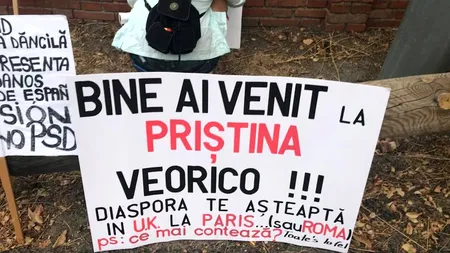 SD
A DĂNCILĂ
PRESENTA
DANOS
DE ESPAÑ
SION
NO PSD
BINE AI VENIT LA
PRIȘTINA
VEORICO !!!
DIASPORA TE AȘTEAPTĂ
IN U.K. LA PARIS...(sau ROMA)
ps: ce mai contează? Toate's la fel